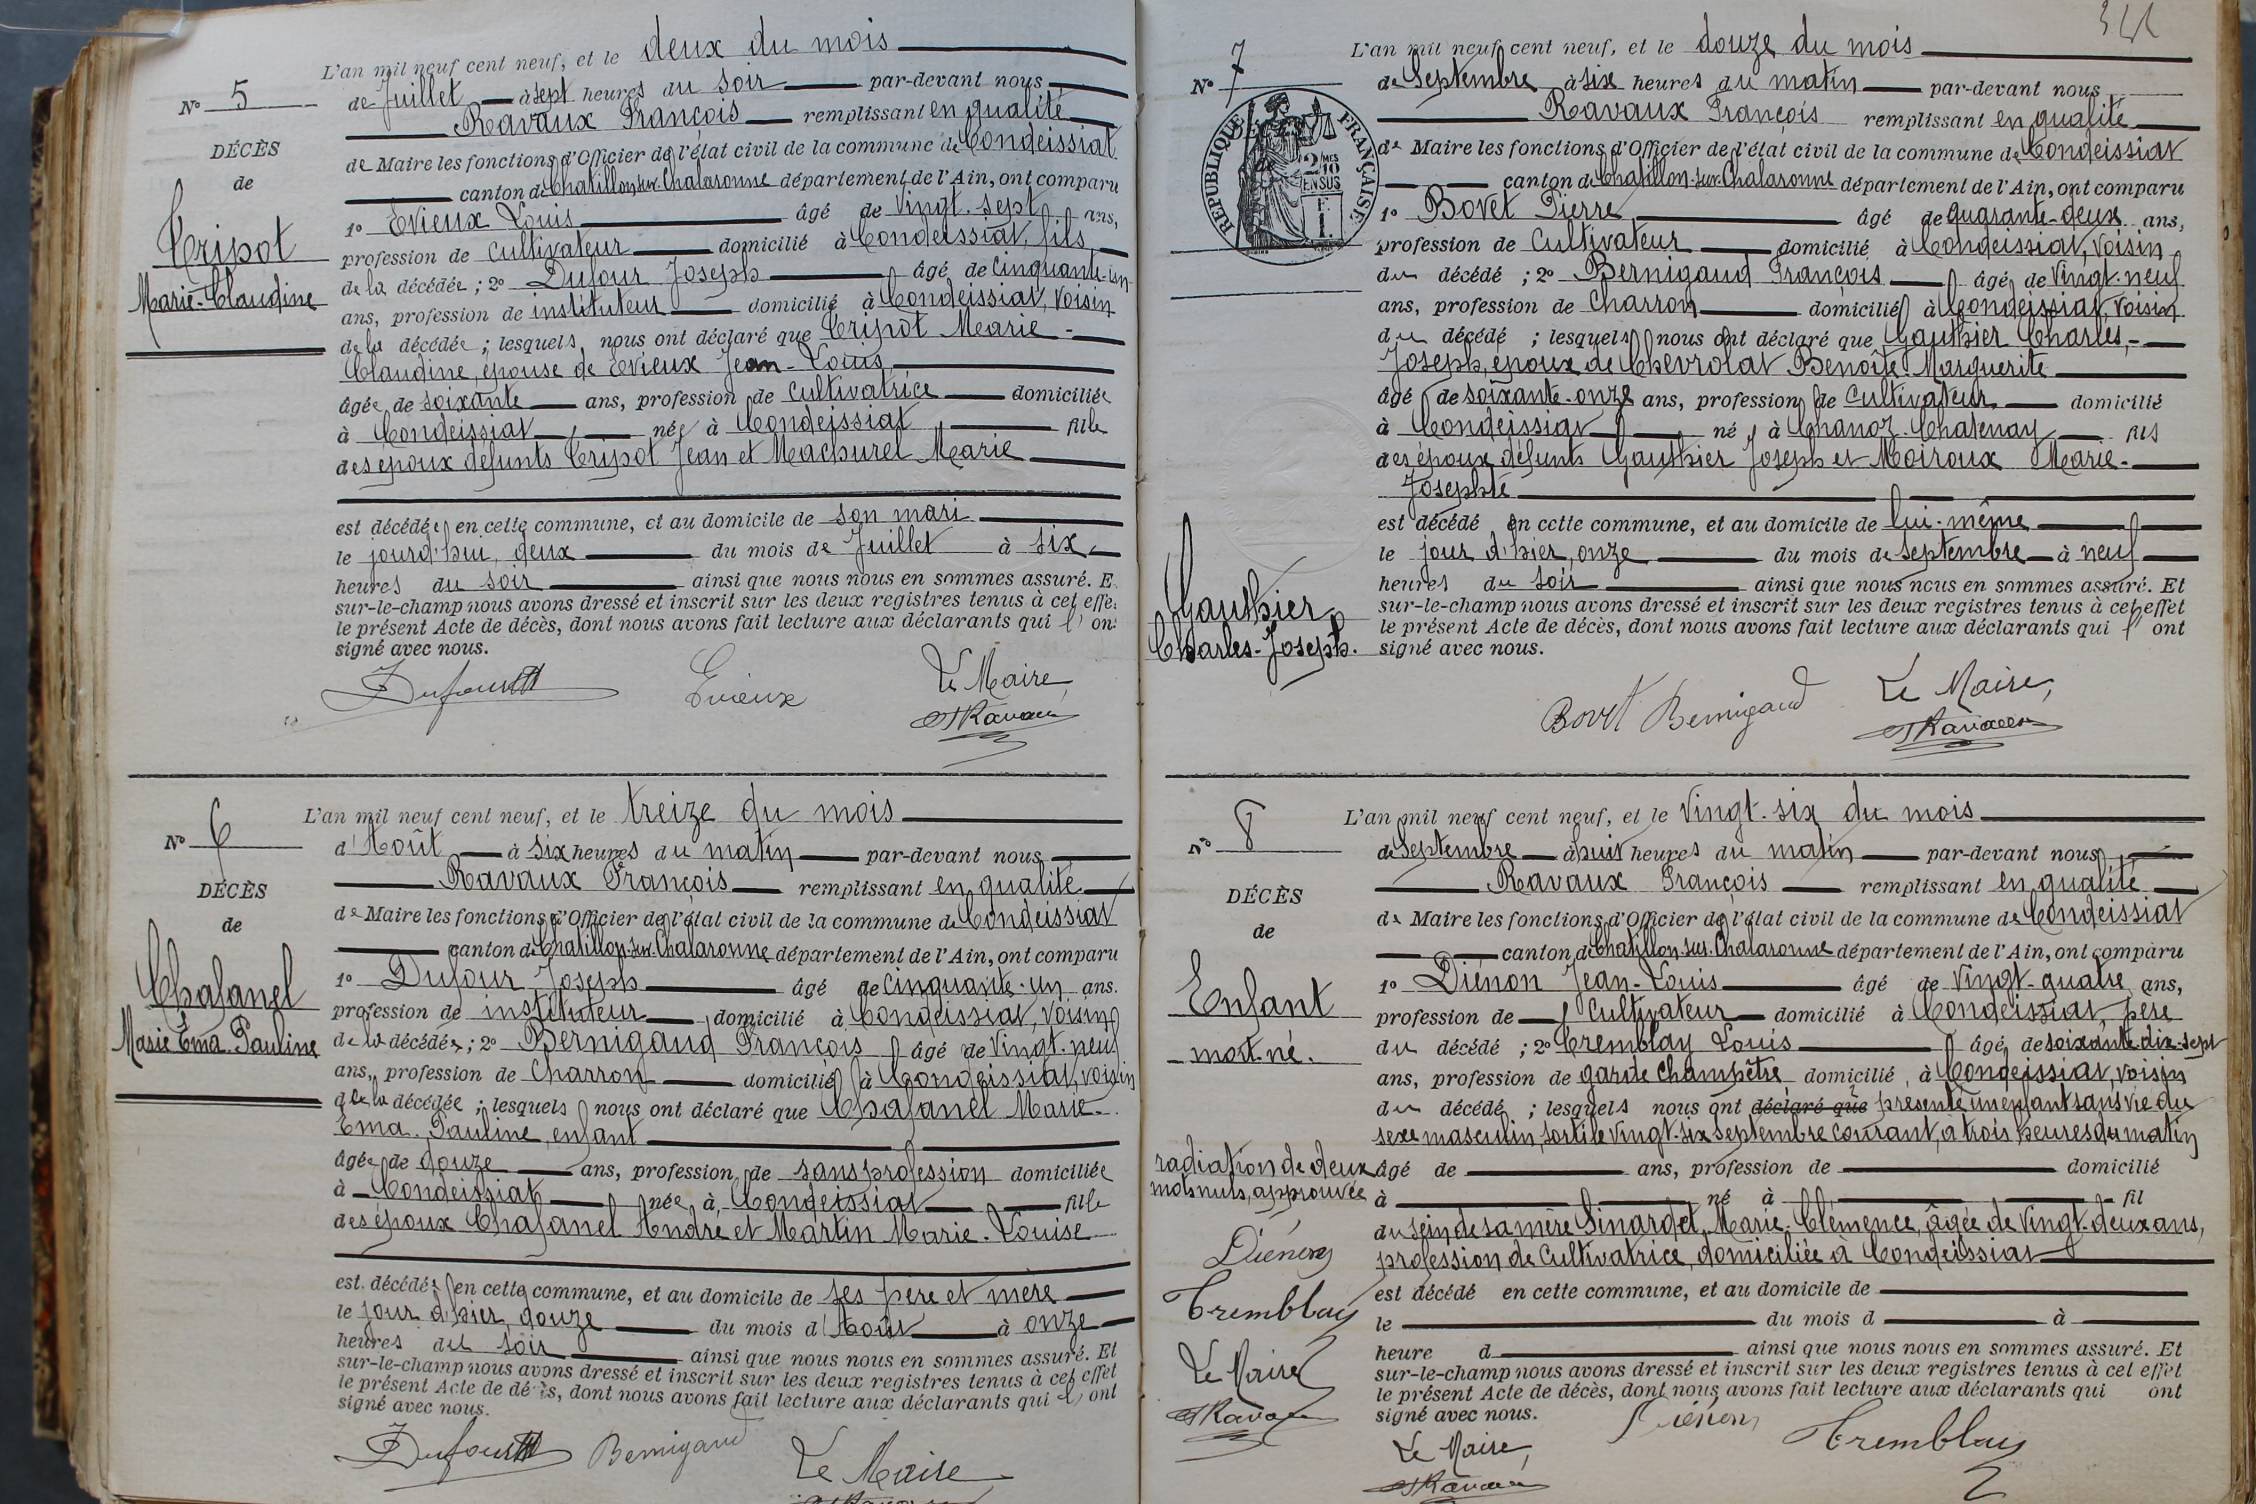 L'an mil neuf cent neuf, et le deux du mois
No 5
de Juillet à sept heures du soir par-devant nous
Ravaux François remplissant en qualité
DÉCÈS
de Maire les fonctions d'Officier de l'état civil de la commune de Condeissiat
de
canton de Chatillon-sur-Chalaronne département de l'Ain, ont comparu
1o Evieux Louis âgé de vingt-sept ans,
Tripot
profession de cultivateur domicilié à Condeissiat, fils
Marie-Claudine
de la décédée ; 2o Dufour Joseph âgé de cinquante-un
ans, profession de instituteur domicilié à Condeissiat, voisin
de la décédée ; lesquels nous ont déclaré que Tripot Marie-
Claudine, épouse de Evieux Jean-Louis
âgée de soixante ans, profession de cultivatrice domiciliée
à Condeissiat, née à Condeissiat fille
des époux défunts Tripot Jean et Machurel Marie
est décédée en cette commune, et au domicile de son mari
le jourd'hui, deux du mois de Juillet à six
heures du soir ainsi que nous nous en sommes assuré. E
sur-le-champ nous avons dressé et inscrit sur les deux registres tenus à cet effe
le présent Acte de décès, dont nous avons fait lecture aux déclarants qui l'on
signé avec nous.
Dufour Evieux Le Maire,
F Ravaux
L'an mil neuf cent neuf, et le treize du mois
No 6
d'Août à six heures du matin par-devant nous
Ravaux François remplissant en qualité
DÉCÈS
de Maire les fonctions d'Officier de l'état civil de la commune de Condeissiat
de
canton de Chatillon-sur-Chalaronne département de l'Ain, ont comparu
1o Dufour Joseph âgé de cinquante-un ans.
Chafanel
profession de instituteur domicilié à Condeissiat, voisin
Marie Ema-Pauline
de la décédée ; 2o Bernigaud François âgé de vingt-neuf
ans, profession de charron domicilié à Condeissiat, voisin
de la décédée ; lesquels nous ont déclaré que Chafanel Marie-
Ema-Pauline, enfant
âgée de douze ans, profession de sans profession domiciliée
à Condeissiat née à Condeissiat fille
des époux Chafanel André et Martin Marie-Louise
est décédée en cette commune, et au domicile de ses père et mère
le jour d'hier, douze du mois d'Août à onze
heures du soir ainsi que nous nous en sommes assuré. Et
sur-le-champ nous avons dressé et inscrit sur les deux registres tenus à cet effet
le présent Acte de décès, dont nous avons fait lecture aux déclarants qui l'ont
signé avec nous.
Dufour Bernigaud Le Maire
L'an mil neuf cent neuf, et le douze du mois
No 7
de Septembre à six heures du matin par-devant nous
RÉPUBLIQUE FRANÇAISE
2/10MES EN SUS
Ravaux François remplissant en qualité
de Maire les fonctions d'Officier de l'état civil de la commune de Condeissiat
canton de Chatillon-sur-Chalaronne département de l'Ain, ont comparu
1o Bovet Pierre âgé de quarante-deux ans,
profession de cultivateur domicilié à Condeissiat, voisin
du décédé ; 2o Bernigaud François âgé de vingt-neuf
ans, profession de charron domicilié à Condeissiat, voisin
du décédé ; lesquels nous ont déclaré que Gauthier Charles-
Joseph, époux de Chevrolat Benoîte Marguerite
âgé de soixante-onze ans, profession de cultivateur domicilié
à Condeissiat, né à Chanoz-Chatenay fils
des époux défunts Gauthier Joseph et Moiroux Marie-
Josephte
est décédé en cette commune, et au domicile de lui-même
le jour d'hier, onze du mois de septembre à neuf
heures du soir ainsi que nous nous en sommes assuré. Et
Gauthier
sur-le-champ nous avons dressé et inscrit sur les deux registres tenus à cet effet
le présent Acte de décès, dont nous avons fait lecture aux déclarants qui l'ont
Charles-Joseph.
signé avec nous.
Bovet Bernigaud Le Maire,
F Ravaux
L'an mil neuf cent neuf, et le vingt-six du mois
No 8
de Septembre à huit heures du matin par-devant nous
Ravaux François remplissant en qualité
DÉCÈS
de Maire les fonctions d'Officier de l'état civil de la commune de Condeissiat
de
canton de Chatillon-sur-Chalaronne département de l'Ain, ont comparu
1o Diénon Jean-Louis âgé de vingt-quatre ans,
Enfant
profession de cultivateur domicilié à Condeissiat, père
mort-né.
du décédé ; 2o Tremblay Louis âgé de soixante-dix-sept
ans, profession de garde champêtre domicilié à Condeissiat, voisin
du décédé ; lesquels nous ont déclaré que présenté un enfant sans vie du
sexe masculin, sorti le vingt-six septembre courant, à trois heures du matin
radiation de deux
âgé de ans, profession de domicilié
mots nuls, approuvée
à né à fil
du sein de sa mère Sinardet Marie-Clémence, âgée de vingt-deux ans,
Diénon
profession de cultivatrice, domiciliée à Condeissiat
Tremblay
est décédé en cette commune, et au domicile de
le du mois d à
Le Maire
heure d ainsi que nous nous en sommes assuré. Et
sur-le-champ nous avons dressé et inscrit sur les deux registres tenus à cet effet
F Ravaux
le présent Acte de décès, dont nous avons fait lecture aux déclarants qui ont
signé avec nous.
Diénon Tremblay
Le Maire,
F Ravaux